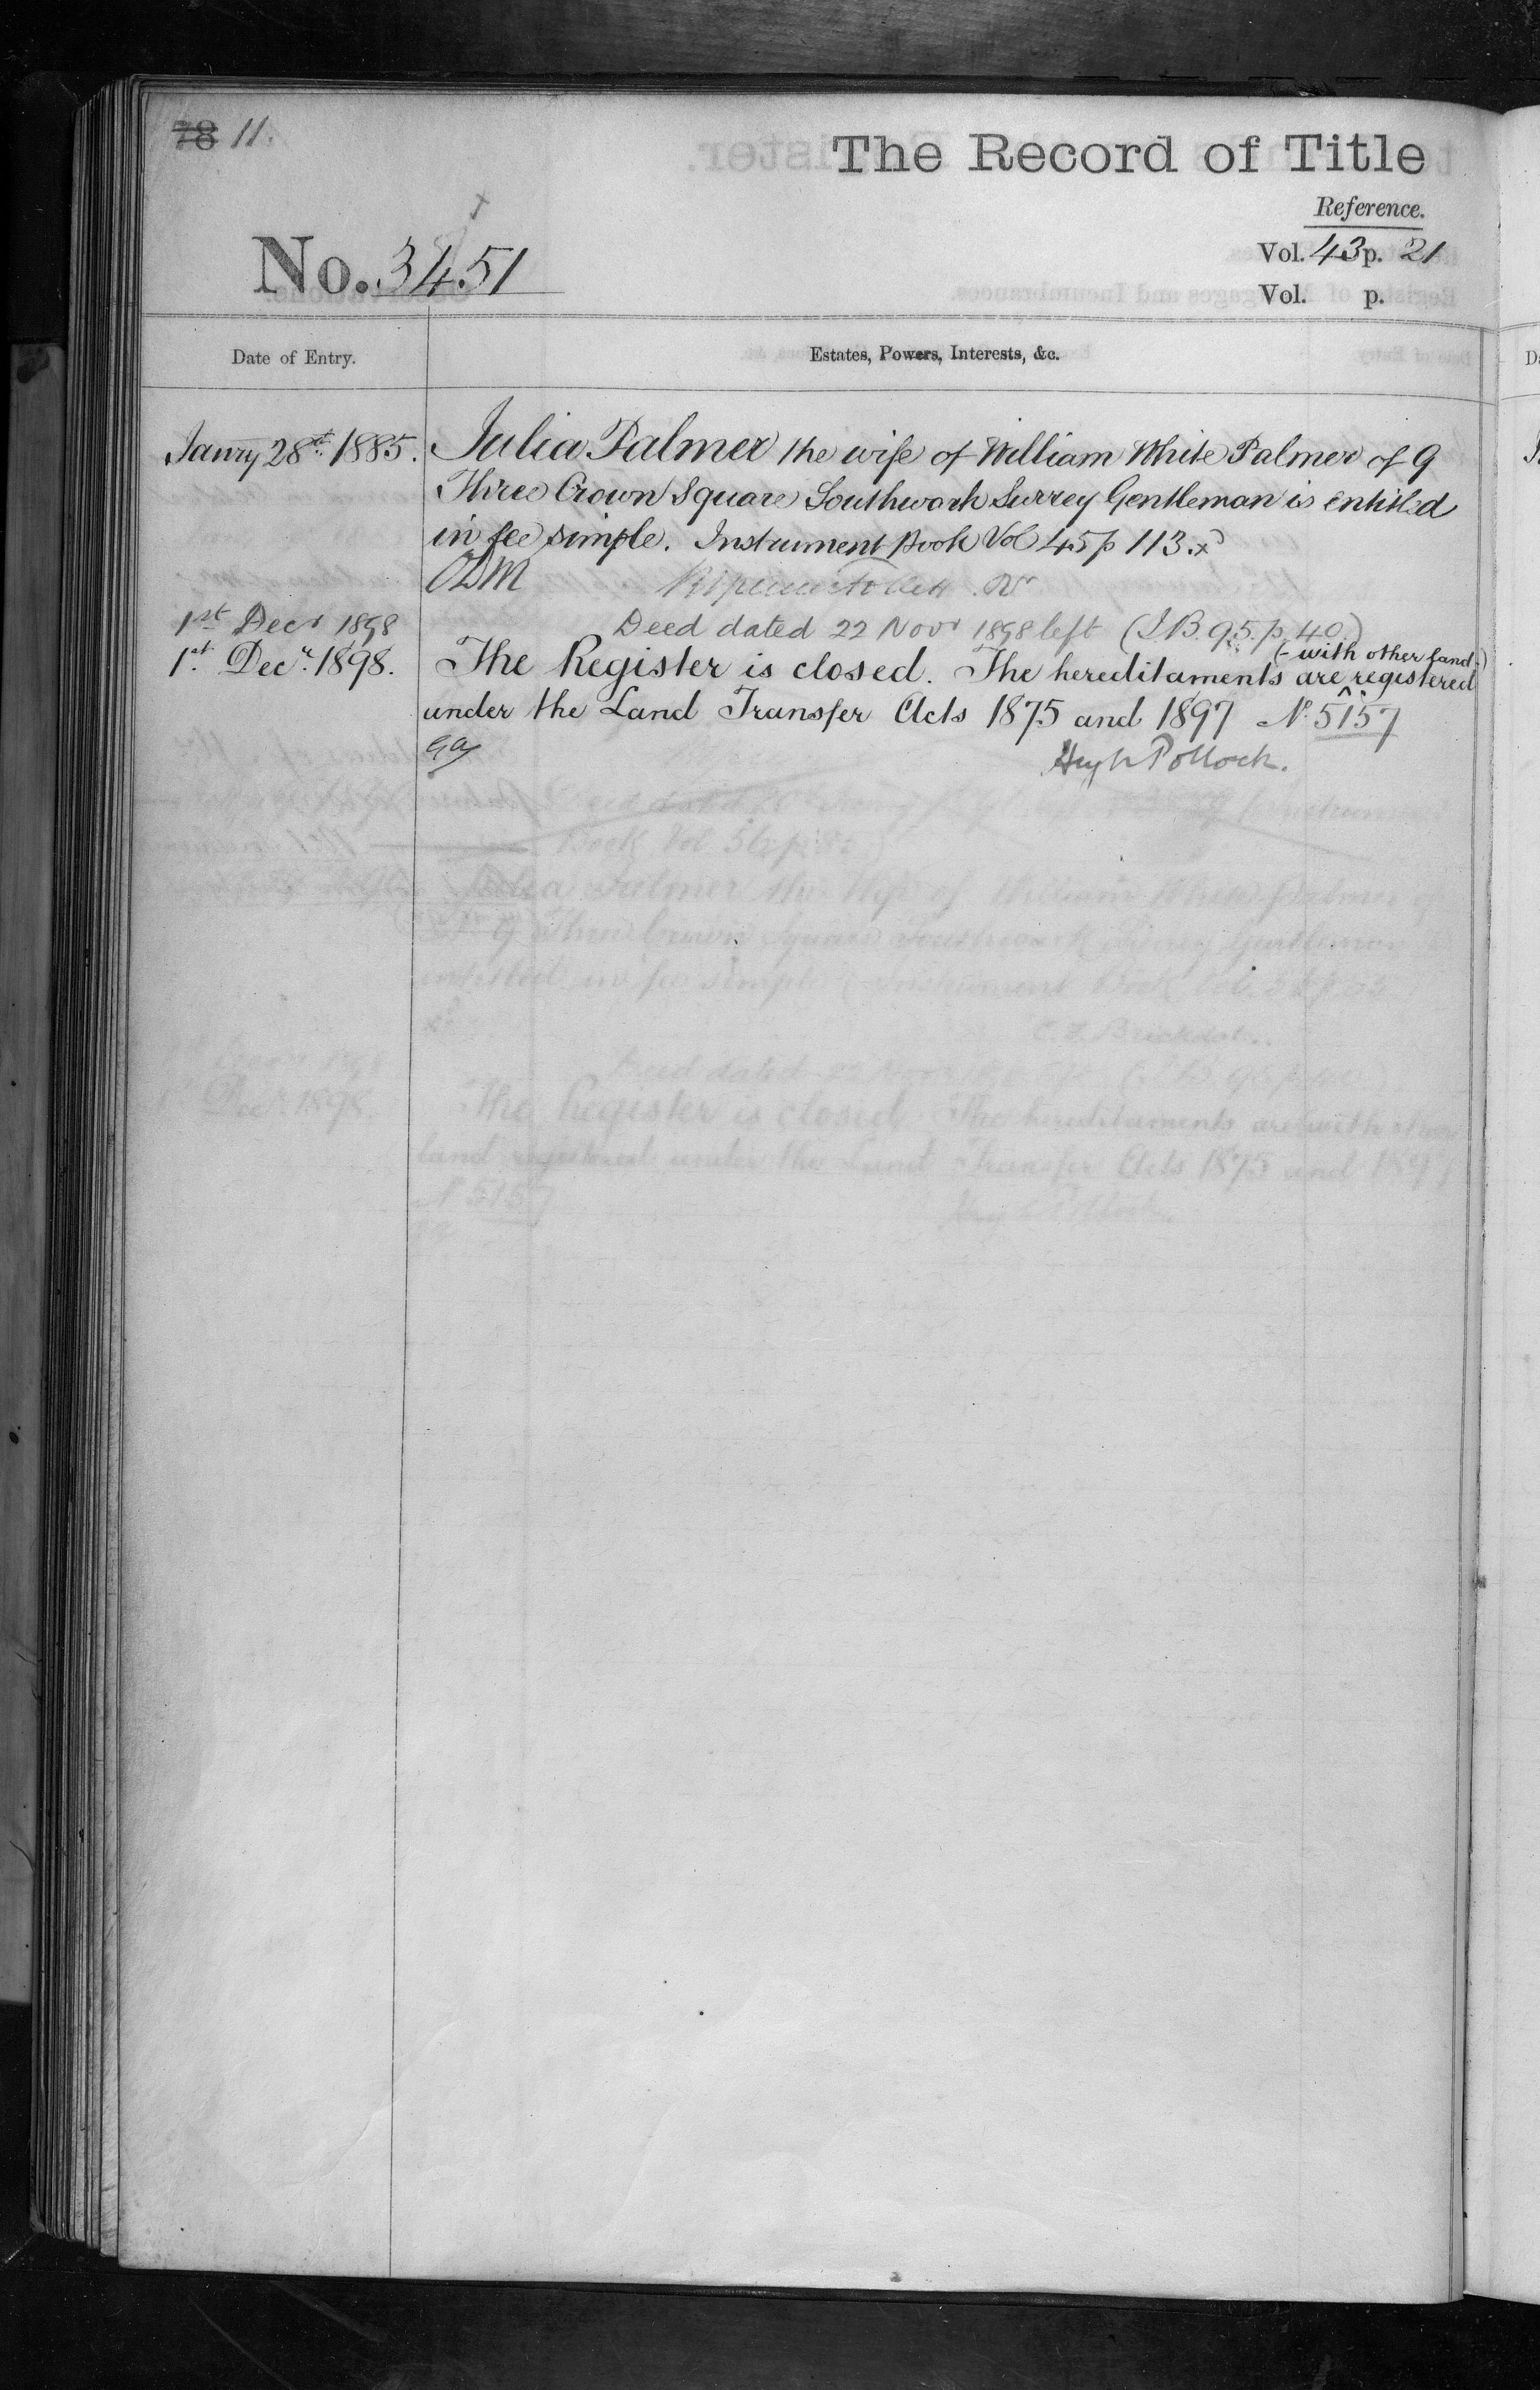 78 11.
The Record of Title
Reference.
No. 3451
Vol. 43 p. 21
Vol. p.
Date of Entry.
Estates, Powers, Interests, &c.
Janry 28th 1885. Julia Palmer the wife of William White Palmer of 9
Three Crown Square Southwark Surrey Gentleman is entitled
in fee simple. Instrument Book Vol 45 p 113.
1st Decr 1898 Deed dated 22 Novr 1898 left (I.B. 95. p. 40.)
(- with other land -)
1st Decr. 1898. The Register is closed. The hereditaments are ^ registered
under the Land Transfer Acts 1875 and 1897 No. 5157
Hugh Pollock.